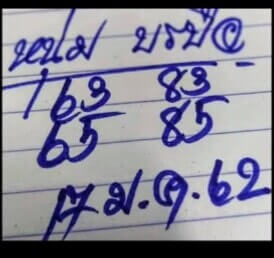 หนุ่ม บรบือ
63 83
65 85
17 ม.ค.62